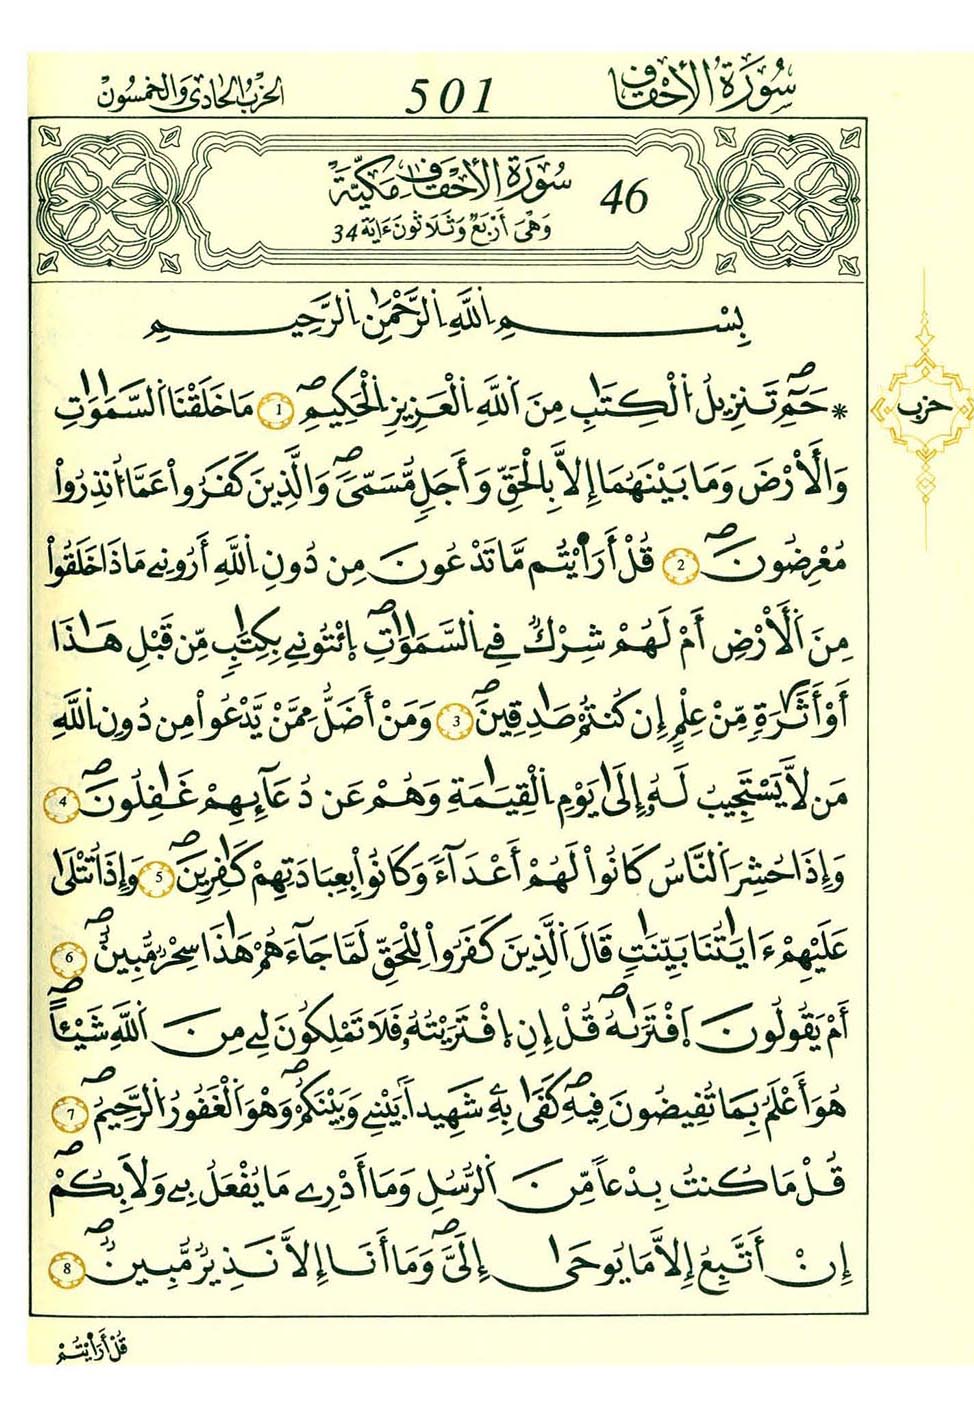 سُورَةُ الْأَحْقَافِ 501 الحِزْبُ الحَادِي وَالخَمْسُونَ
46 سُورَةُ الْأَحْقَافِ مَكِّيَّةٌ
وَهْيَ أَرْبَعٌ وَثَلَاثُونَ ءَايَةً 34
بِسْمِ اِللَّهِ اِلرَّحْمَٰنِ اِلرَّحِيمِ
* حَمِٓۖ تَنزِيلُ اُلْكِتَٰبِ مِنَ اَللَّهِ اِلْعَزِيزِ اِلْحَكِيمِۖ 1 مَا خَلَقْنَا اَلسَّمَٰوَٰتِ
حزب
وَالْأَرْضَ وَمَا بَيْنَهُمَا إِلَّا بِالْحَقِّ وَأَجَلٍ مُّسَمّىًۖ وَالَّذِينَ كَفَرُواْ عَمَّا أُنذِرُواْ
مُعْرِضُونَۖ 2 قُلْ أَرَٰيْتُم مَّا تَدْعُونَ مِن دُونِ اِللَّهِ أَرُونِے مَاذَا خَلَقُواْ
مِنَ اَلْأَرْضِ أَمْ لَهُمْ شِرْكٌ فِے اِلسَّمَٰوَٰتِۖ اِئْتُونِے بِكِتَٰبٍ مِّن قَبْلِ هَٰذَا
أَوْ أَثَٰرَةٍ مِّنْ عِلْمٍ إِن كُنتُمْ صَٰدِقِينَۖ 3 وَمَنْ أَضَلُّ مِمَّنْ يَّدْعُواْ مِن دُونِ اِللَّهِ
مَن لَّا يَسْتَجِيبُ لَهُۥ إِلَىٰ يَوْمِ اِلْقِيَٰمَةِ وَهُمْ عَن دُعَآئِهِمْ غَٰفِلُونَۖ 4
وَإِذَا حُشِرَ اَلنَّاسُ كَانُواْ لَهُمْ أَعْدَآءً وَكَانُواْ بِعِبَادَتِهِمْ كَٰفِرِينَۖ 5 وَإِذَا تُتْلَىٰ
عَلَيْهِمْ ءَايَٰتُنَا بَيِّنَٰتٍ قَالَ اَلَّذِينَ كَفَرُواْ لِلْحَقِّ لَمَّا جَآءَهُمْ هَٰذَا سِحْرٌ مُّبِينٌۖ 6
أَمْ يَقُولُونَ اَفْتَرَىٰهُۖ قُلْ إِنِ اِفْتَرَيْتُهُۥ فَلَا تَمْلِكُونَ لِے مِنَ اَللَّهِ شَيْئاًۖ
هُوَ أَعْلَمُ بِمَا تُفِيضُونَ فِيهِۖ كَفَىٰ بِهِۦ شَهِيداً بَيْنِے وَبَيْنَكُمْۖ وَهُوَ اَلْغَفُورُ اُلرَّحِيمُۖ 7
قُلْ مَا كُنتُ بِدْعاً مِّنَ اَلرُّسُلِ وَمَا أَدْرِے مَا يُفْعَلُ بِے وَلَا بِكُمْۖ
إِنْ أَتَّبِعُ إِلَّا مَا يُوحَىٰ إِلَيَّۖ وَمَا أَنَا إِلَّا نَذِيرٌ مُّبِينٌۖ 8
قُلْ أَرَٰيْتُمْ